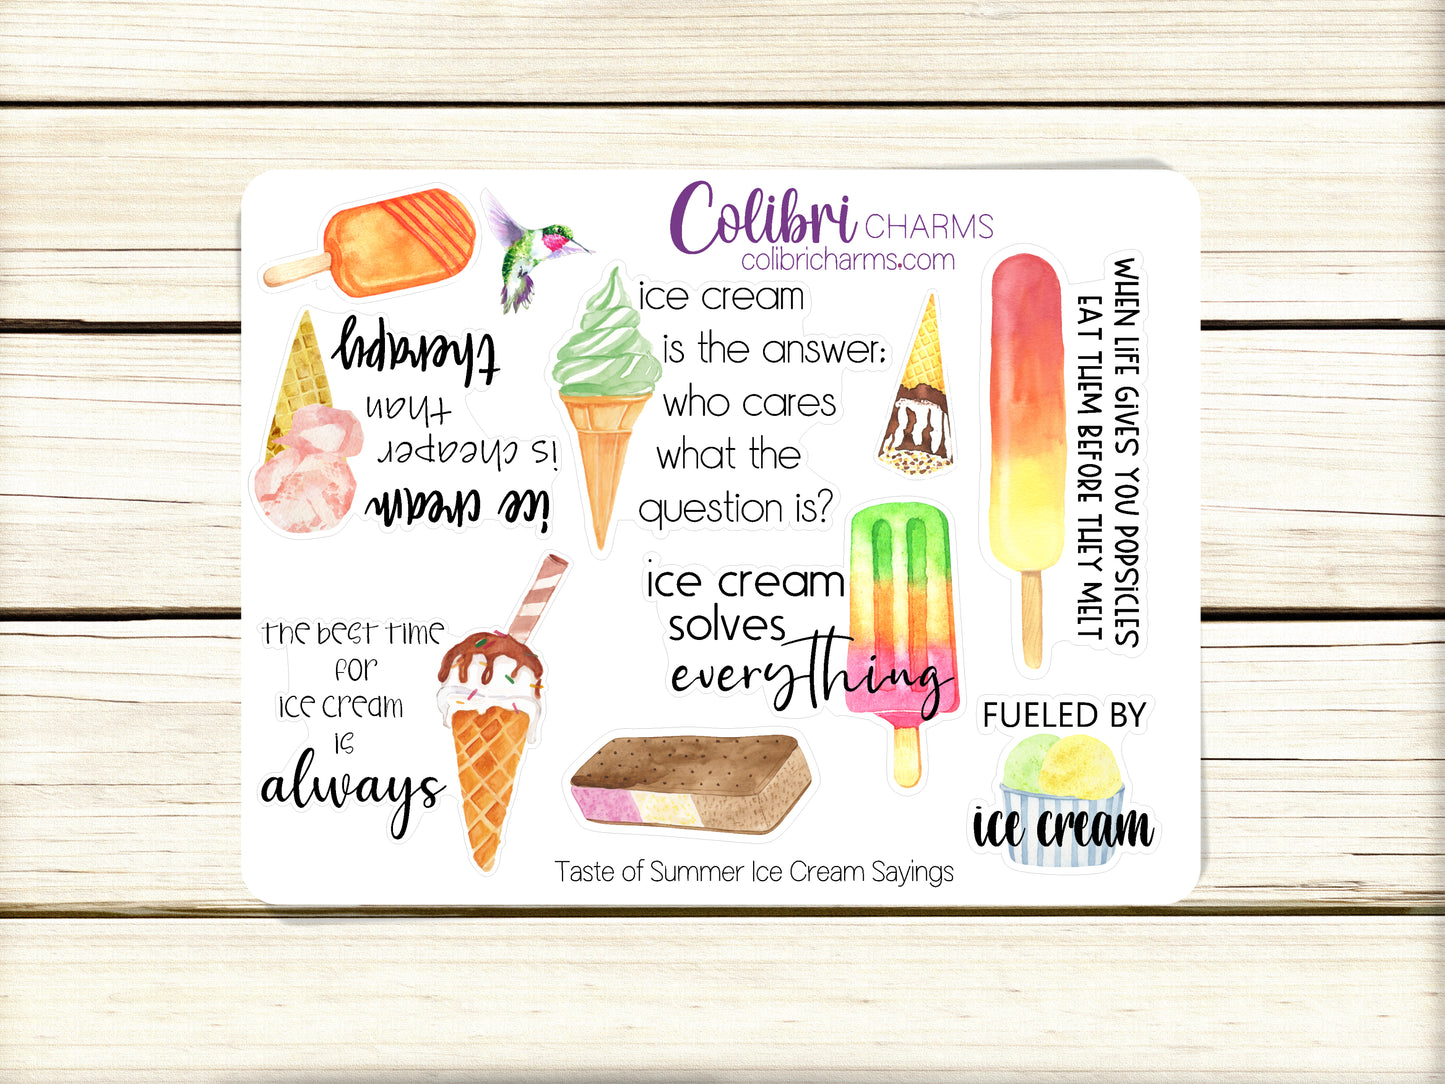 Colibri CHARMS
colibricharms.com
ice cream
is the answer:
who cares
what the
question is?
ice cream
is cheaper
than
therapy
WHEN LIFE GIVES YOU POPSICLES
EAT THEM BEFORE THEY MELT
ice cream
solves
everything
the best time
for
ice cream
is
always
FUELED BY
ice cream
Taste of Summer Ice Cream Sayings